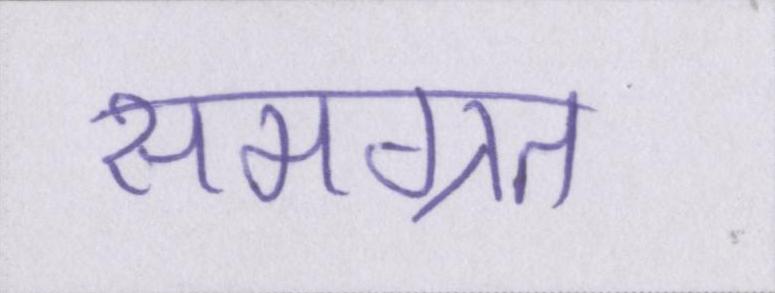 समग्रत